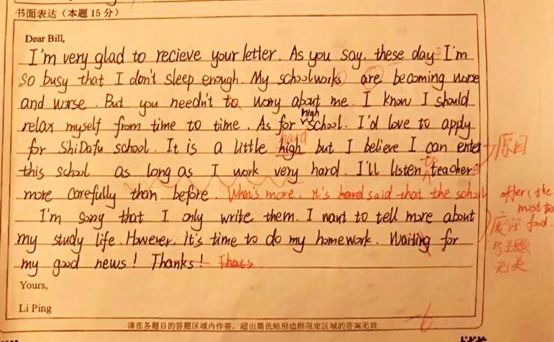 书面表达(本题15分)
Dear Bill,
I'm very glad to recieve your letter. As you say, these day I'm
so busy that I don't sleep enough. My schoolworks are becoming worse
and worse. But you needn't to worry about me. I know I should
relax myself from time to time. As for high school. I'd love to apply
for ShiDaFu school. It is a little high but I believe I can enter
hard
this school as long as I work very hard. I'll listen to teacher
more carefully than before. What's more, it's hard said that the school
offers the
most
food.
I'm sorry that I only write them. I want to tell more about
my study life. However, it's time to do my homework. Waiting for
my good news! Thanks! That's
Yours,
Li Ping
原因
无关
6
请在各题目的答题区域内作答,超出黑色矩形边框限定区域的答案无效